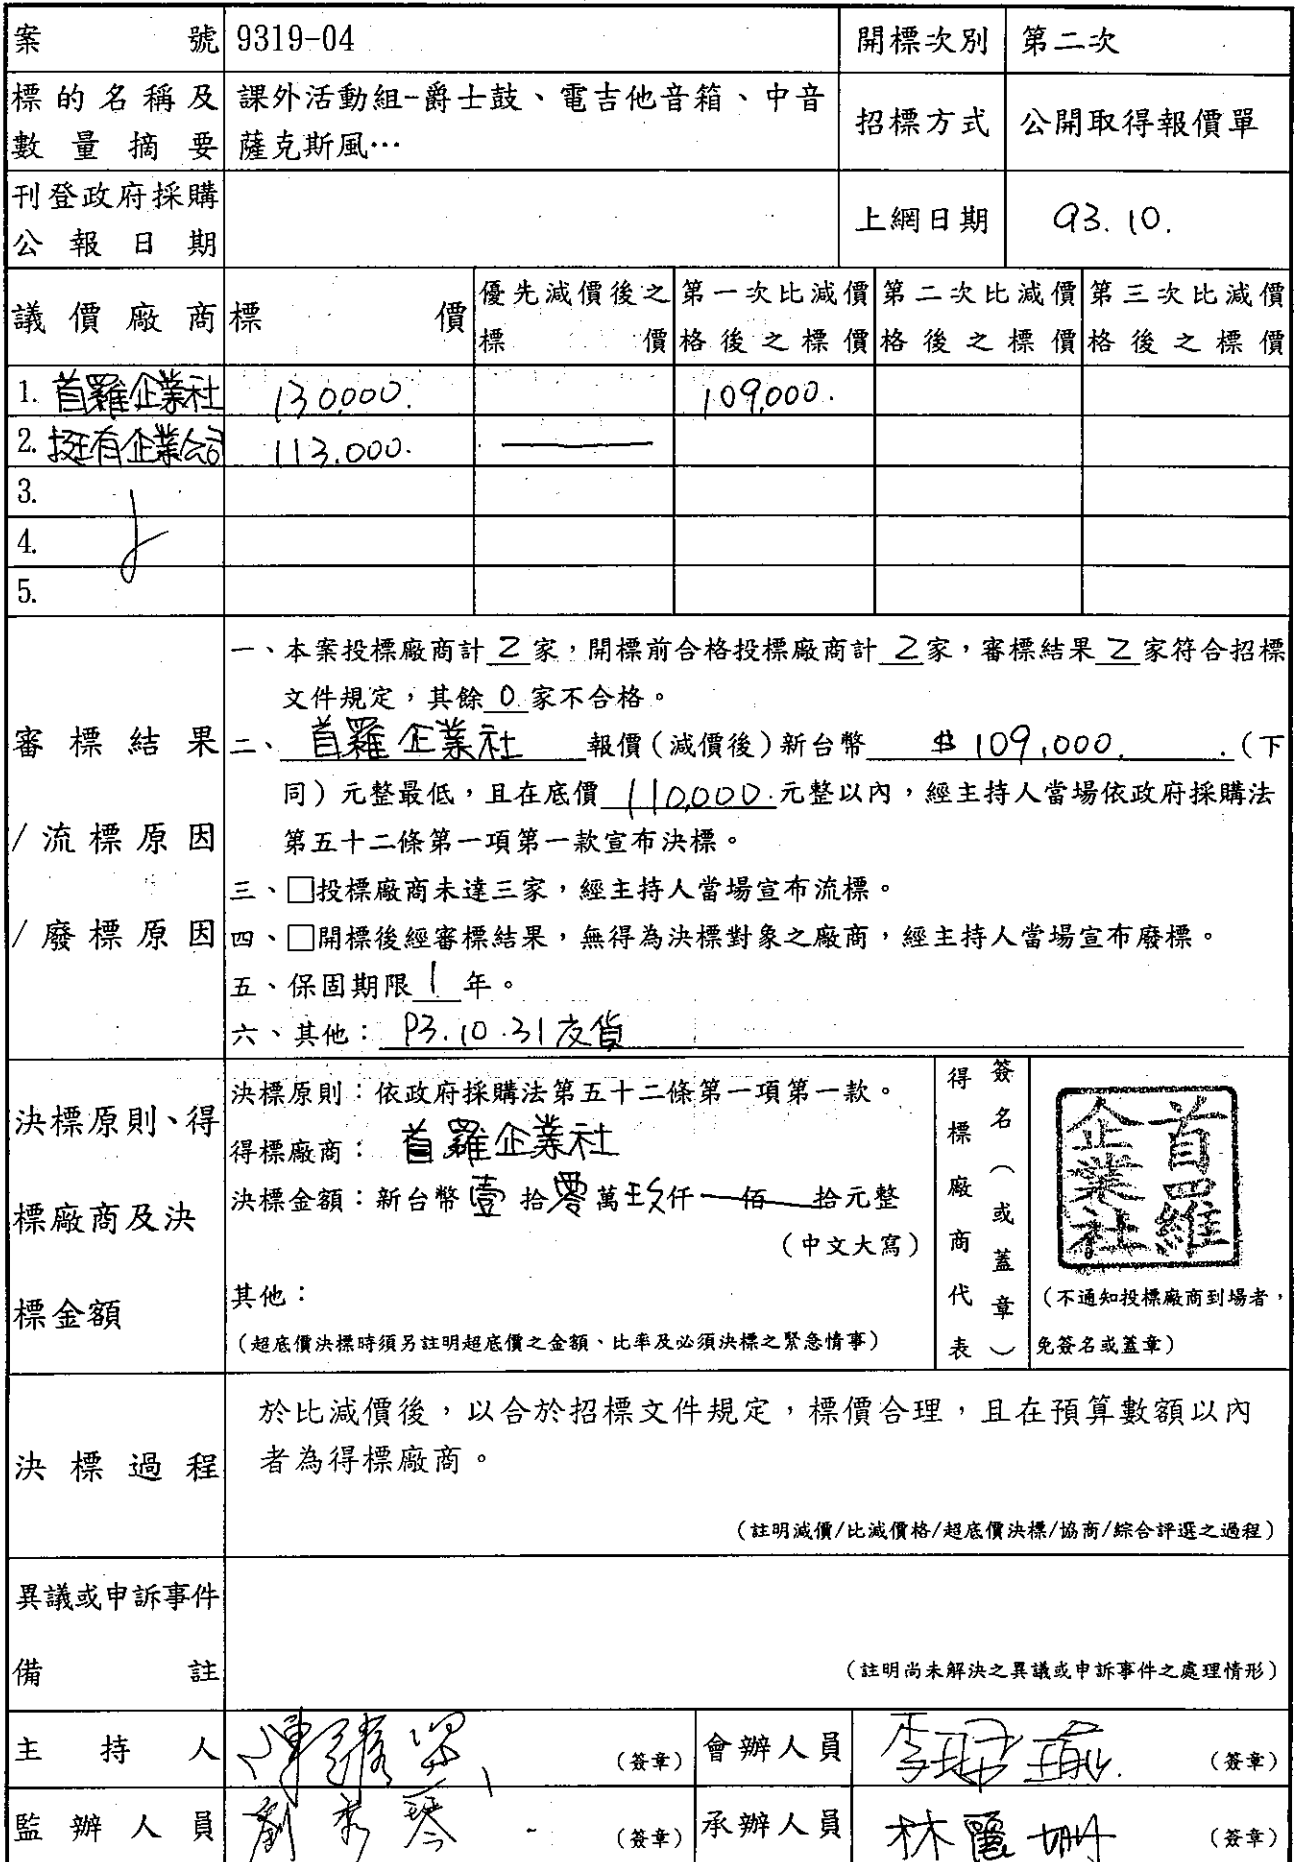 案號 9319-04 開標次別 第二次
標的名稱及數量摘要 課外活動組-爵士鼓、電吉他音箱、中音
薩克斯風… 招標方式 公開取得報價單
刊登政府採購公報日期 上網日期 93.10.
議價廠商 標價 優先減價後之標價 第一次比減價格後之標價 第二次比減價格後之標價 第三次比減價格後之標價
1. 首羅企業社 130,000. 109,000.
2. 挺有企業公司 113,000.
3.
4.
5.
審標結果/流標原因/廢標原因
一、本案投標廠商計 2 家，開標前合格投標廠商計 2 家，審標結果 2 家符合招標
文件規定，其餘 0 家不合格。
二、首羅企業社 報價(減價後)新台幣 $109,000. (下
同)元整最低，且在底價 110,000. 元整以內，經主持人當場依政府採購法
第五十二條第一項第一款宣布決標。
三、□投標廠商未達三家，經主持人當場宣布流標。
四、□開標後經審標結果，無得為決標對象之廠商，經主持人當場宣布廢標。
五、保固期限 1 年。
六、其他：93.10.31交貨
決標原則、得標廠商及決標金額
決標原則：依政府採購法第五十二條第一項第一款。
得標廠商：首羅企業社
決標金額：新台幣壹拾零萬玖仟—佰—拾元整
(中文大寫)
其他：
(超底價決標時須另註明超底價之金額、比率及必須決標之緊急情事)
得標廠商代表
簽名(或蓋章)
首羅
企業社
(不通知投標廠商到場者，
免簽名或蓋章)
決標過程
於比減價後，以合於招標文件規定，標價合理，且在預算數額以內
者為得標廠商。
(註明減價/比減價格/超底價決標/協商/綜合評選之過程)
異議或申訴事件
備註
(註明尚未解決之異議或申訴事件之處理情形)
主持人 (簽章) 會辦人員 (簽章)
監辦人員 劉秀琴 (簽章) 承辦人員 林麗珊 (簽章)